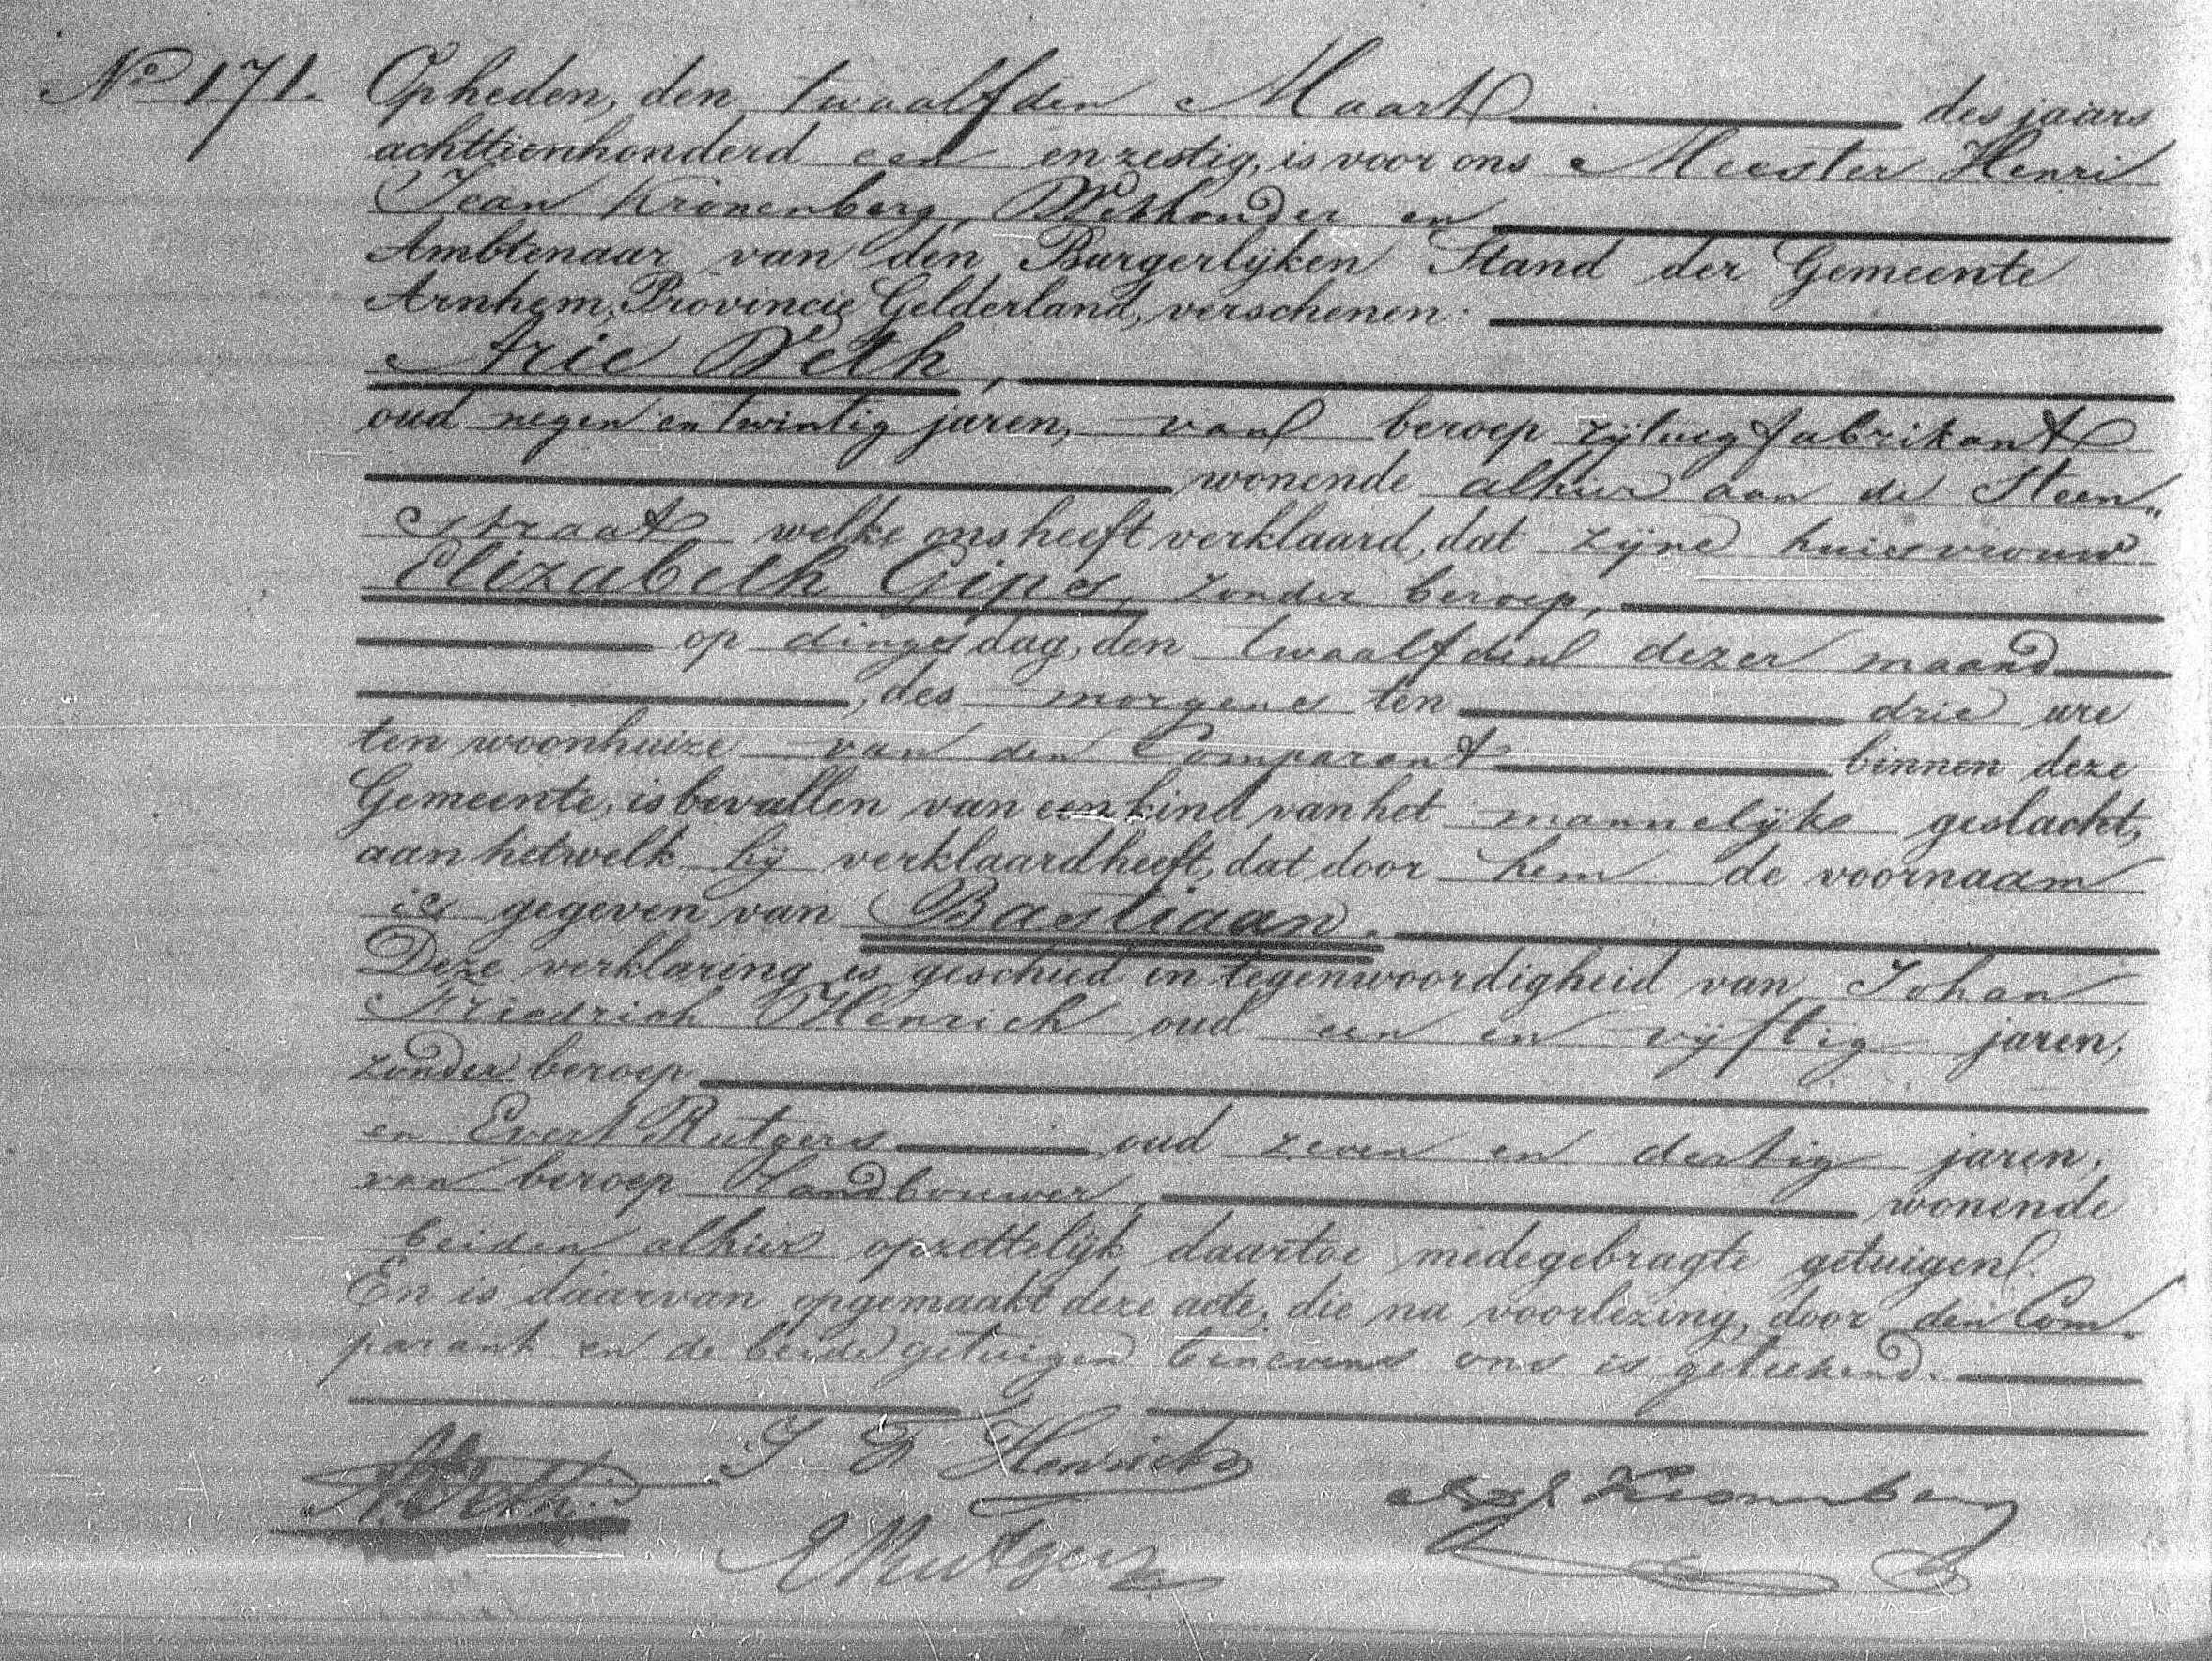 No 171. Opheden, den twaalfden Maart des jaars
achttienhonderd een en zestig, is voor ons Meester Henri
Jean Kronenberg, Wethouder en
Ambtenaar van den Burgerlijken Stand der Gemeente
Arnhem, Provincie Gelderland, verschenen:
Arie Veth,
oud negen en twintig jaren, van beroep rijtuigfabrikant
wonende alhier aan de Steen„
straat welke ons heeft verklaard, dat zijne huisvrouw
Elizabeth Gips, zonder beroep,
op dingsdag, den twaalfden dezer maand
, des morgens ten drie ure
ten woonhuize van den Comparant binnen deze
Gemeente, is bevallen van een kind van het mannelijk geslacht,
aan hetwelk hij verklaard heeft, dat door hem de voornaam
is gegeven van Bastiaan.
Deze verklaring is geschied in tegenwoordigheid van Johan
Friedrich Henrich oud een en vijftig jaren,
zonder beroep
en Evert Rutgers oud zeven en dertig jaren,
van beroep Landbouwer, wonende
beiden alhier opzettelijk daartoe medegebragte getuigen.
En is daarvan opgemaakt deze acte, die na voorlezing, door den Com„
parant en de beide getuigen benevens ons is geteekend.
A. Veth. J F Henrich
HJ Kronenberg
E Rutgers